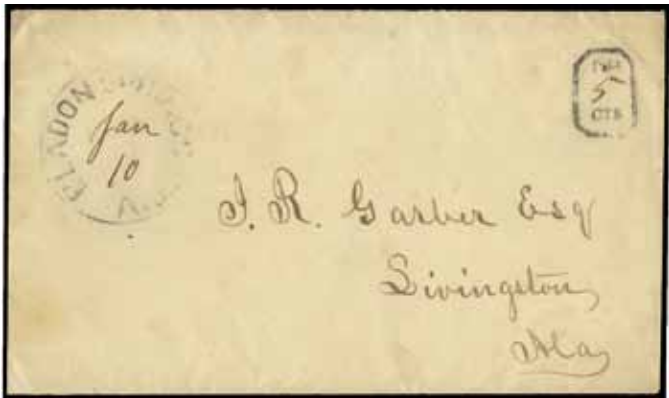 BLADON SPRINGS
Jan
10
ALA.
PAID
5
CTS
J. R. Garber Esq
Livingston,
Ala,